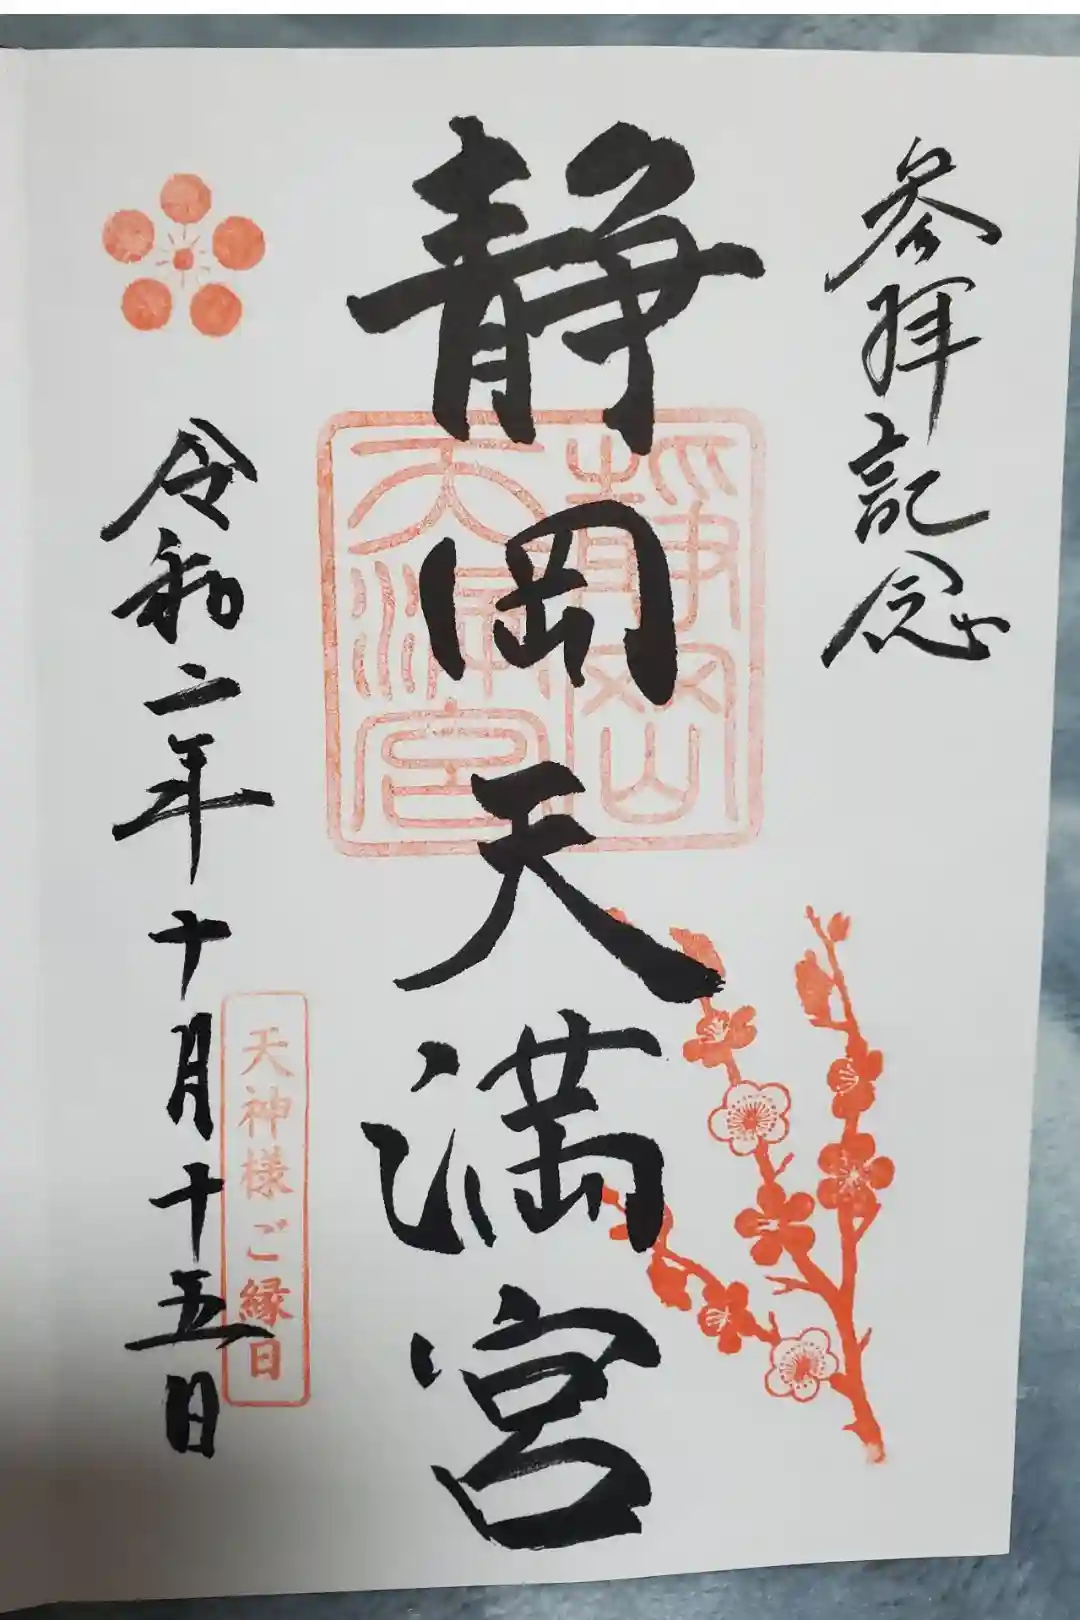 参拝記念
静岡天満宮
静岡
天満宮
令和二年十月十五日
天神様ご縁日